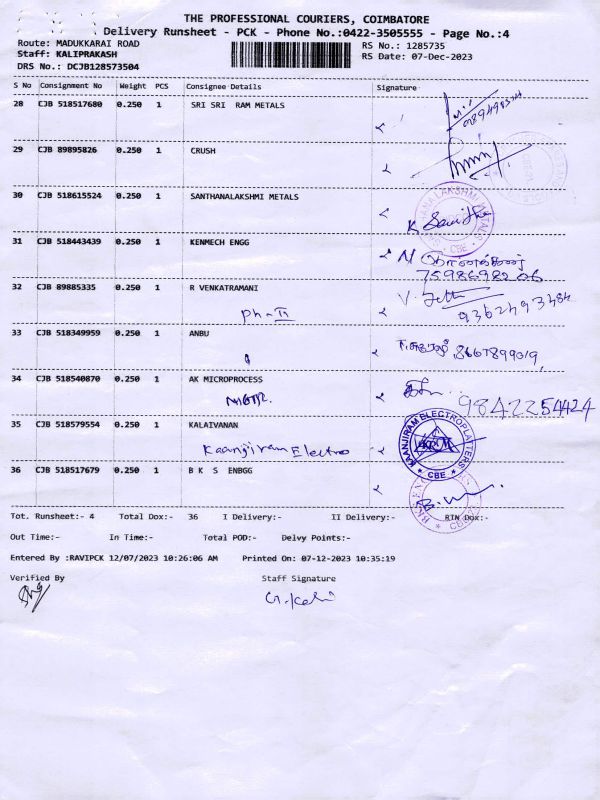 THE PROFESSIONAL COURIERS, COIMBATORE
Delivery Runsheet - PCK - Phone No.:0422-3505555 - Page No.:4
Route: MADUKKARAI ROAD
RS No.: 1285735
Staff: KALIPRAKASH
RS Date: 07-Dec-2023
DRS No.: DCJB128573504
S No Consignment No Weight PCS Consignee Details Signature
28 CJB 518517680 0.250 1 SRI SRI RAM METALS
29 CJB 89895826 0.250 1 CRUSH
30 CJB 518615524 0.250 1 SANTHANALAKSHMI METALS
31 CJB 518443439 0.250 1 KENMECH ENGG
32 CJB 89885335 0.250 1 R VENKATRAMANI
Ph-II
9362493484
33 CJB 518349959 0.250 1 ANBU
8667899019
34 CJB 518540870 0.250 1 AK MICROPROCESS
9842254424
35 CJB 518579554 0.250 1 KALAIVANAN
Kaanjiram Electro
KAANJIRAM ELECTROPLATTERS
* CBE *
36 CJB 518517679 0.250 1 B K S ENBGG
Tot. Runsheet:- 4 Total Dox:- 36 I Delivery:- II Delivery:- RTN Dox:-
Out Time:- In Time:- Total POD:- Delvy Points:-
Entered By :RAVIPCK 12/07/2023 10:26:06 AM Printed On: 07-12-2023 10:35:19
Verified By Staff Signature